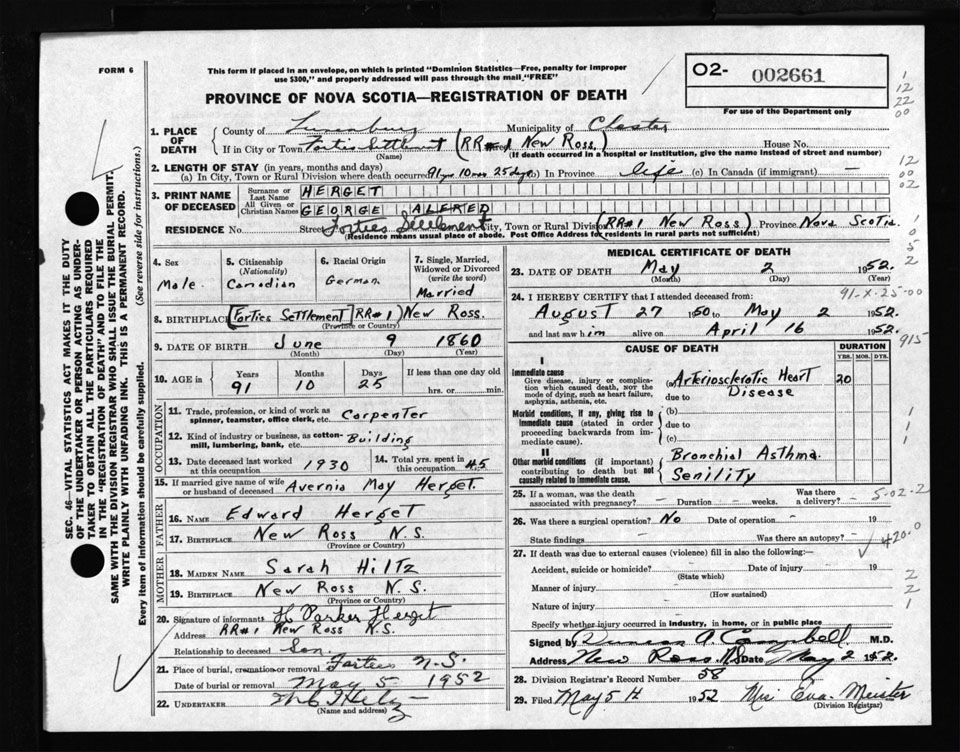 FORM 6
This form if placed in an envelope, on which is printed "Dominion Statistics—Free, penalty for improper
use $300," and properly addressed will pass through the mail "FREE"
O2- 002661
For use of the Department only
PROVINCE OF NOVA SCOTIA—REGISTRATION OF DEATH
1
12
22
00
SEC. 46—VITAL STATISTICS ACT MAKES IT THE DUTY
OF THE UNDERTAKER OR PERSON ACTING AS UNDER-
TAKER TO OBTAIN ALL THE PARTICULARS REQUIRED
IN THE "REGISTRATION OF DEATH" AND TO FILE THE
SAME WITH THE DIVISION REGISTRAR WHO SHALL ISSUE THE BURIAL PERMIT.
WRITE PLAINLY WITH UNFADING INK. THIS IS A PERMANENT RECORD.
Every item of information should be carefully supplied. (See reverse side for instructions.)
1. PLACE OF DEATH County of Lunenburg Municipality of Chester
If in City or Town Forties Settlement (RR#1 New Ross.) House No.
(Name) (If death occurred in a hospital or institution, give the name instead of street and number)
2. LENGTH OF STAY (in years, months and days)
(a) In City, Town or Rural Division where death occurred 91 yrs 10 mos 25 days (b) In Province life (c) In Canada (if immigrant) —
12
00
02
3. PRINT NAME OF DECEASED Surname or Last Name HERGET
All Given or Christian Names GEORGE ALFRED
RESIDENCE No. Street Forties Settlement City, Town or Rural Division (RR#1 New Ross) Province Nova Scotia.
(Residence means usual place of abode. Post Office Address for residents in rural parts not sufficient)
4. Sex Male
5. Citizenship (Nationality) Canadian
6. Racial Origin German
7. Single, Married, Widowed or Divorced (write the word) Married
8. BIRTHPLACE (Forties Settlement) RR#1) New Ross.
(Province or Country)
9. DATE OF BIRTH June 9 1860
(Month) (Day) (Year)
10. AGE in Years 91 Months 10 Days 25 If less than one day
hrs. or min.
OCCUPATION
11. Trade, profession, or kind of work as spinner, teamster, office clerk, etc. Carpenter
12. Kind of industry or business, as cotton-mill, lumbering, bank, etc. Building
13. Date deceased last worked at this occupation 1930
14. Total yrs. spent in this occupation 45
15. If married give name of wife or husband of deceased Avernia May Herget.
FATHER
16. NAME Edward Herget
17. BIRTHPLACE New Ross N.S.
(Province or Country)
MOTHER
18. MAIDEN NAME Sarah Hiltz
19. BIRTHPLACE New Ross N.S.
(Province or Country)
20. Signature of informant H Parker Herget
Address RR#1 New Ross N.S.
Relationship to deceased Son.
21. Place of burial, cremation or removal Forties N.S.
Date of burial or removal May 5 1952
22. UNDERTAKER
(Name and address)
MEDICAL CERTIFICATE OF DEATH
23. DATE OF DEATH May 2 1952.
(Month) (Day) (Year)
24. I HEREBY CERTIFY that I attended deceased from:
91-X-25-00
August 27 1950 to May 2 1952.
and last saw him alive on April 16 1952.
915
CAUSE OF DEATH DURATION
YRS. MOS. DYS.
I
Immediate cause
Give disease, injury or complication which caused death, NOT the mode of dying, such as heart failure, asphyxia, asthenia, etc.
(a) Arteriosclerotic Heart Disease 20
due to
Morbid conditions, if any, giving rise to immediate cause (stated in order proceeding backwards from immediate cause).
(b)
due to
(c)
II
Other morbid conditions (if important) contributing to death but not causally related to immediate cause.
Bronchial Asthma.
Senility
25. If a woman, was the death associated with pregnancy? — Duration — weeks. Was there a delivery? —
5-02-2
26. Was there a surgical operation? No Date of operation — 19
State findings — Was there an autopsy? —
420.0
27. If death was due to external causes (violence) fill in also the following:—
Accident, suicide or homicide? Date of injury — 19
(State which)
Manner of injury
(How sustained)
Nature of injury
Specify whether injury occurred in industry, in home, or in public place
2
2
1
Signed by Duncan A. Campbell M.D.
Address New Ross. N.S. Date May 2 1952.
28. Division Registrar's Record Number 58
29. Filed May 5th 1952 Mrs. Eva. Meister
(Division Registrar)